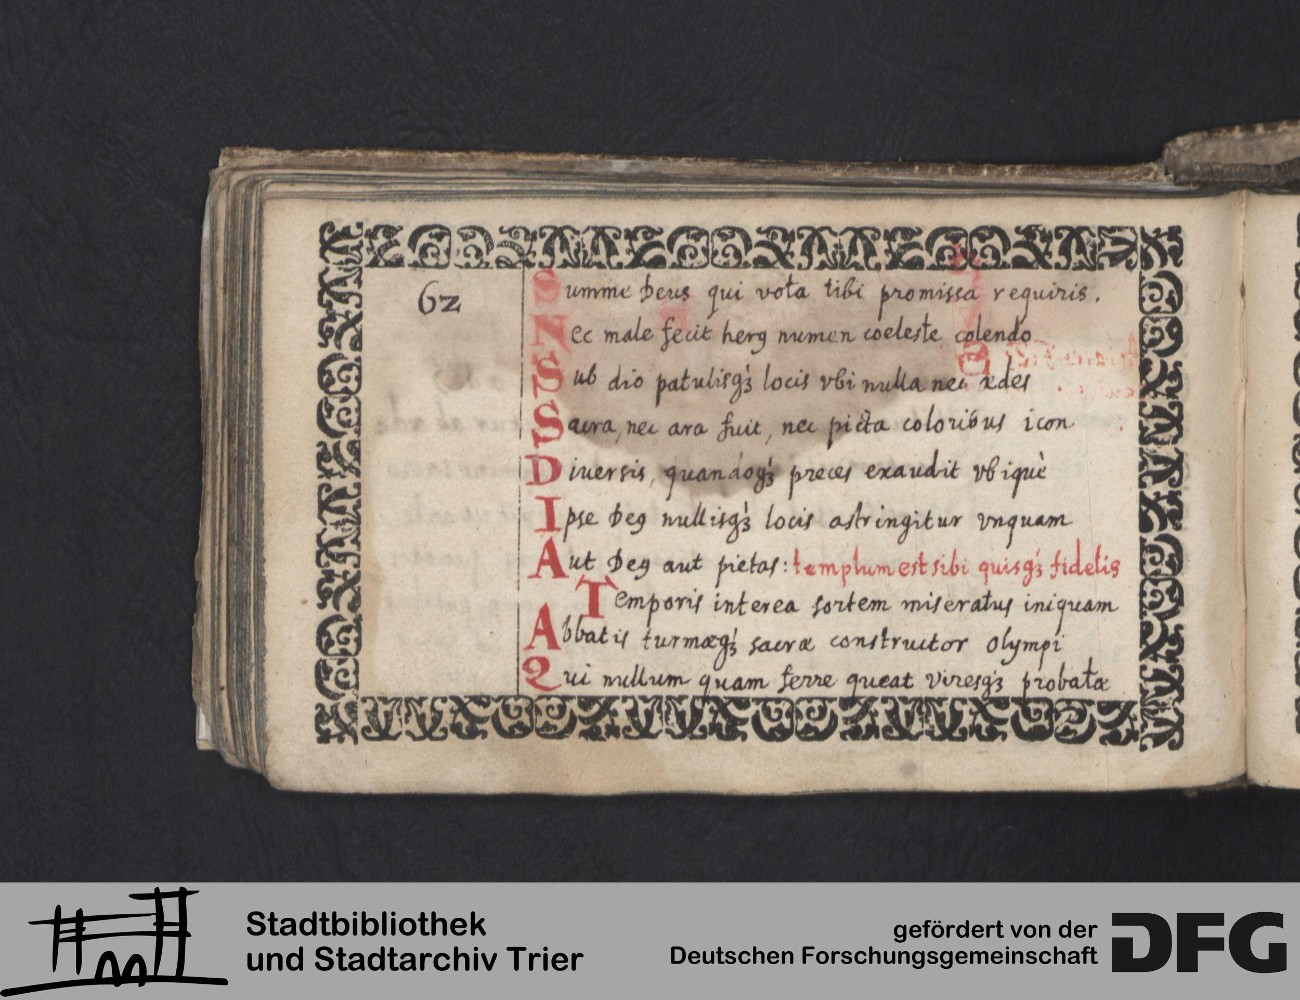 62
Summe Deus qui vota tibi promissa requiris.
Nec male fecit herꝯ numen coeleste colendo
Sub dio patulisqꝫ locis vbi nulla nec ædes
Sacra, nec ara fuit, nec picta coloribus icon
Diuersis, quandoqꝫ preces exaudit vbiquè
Ipse Deꝯ nullisqꝫ locis astringitur vnquam
Aut Deꝯ aut pietas: templum est sibi quisqꝫ fidelis
Temporis interea sortem miseratus iniquam
Abbatis turmæqꝫ sacræ constructor Olympi
Qui nullum quam ferre queat viresqꝫ probatæ
Stadtbibliothek
und Stadtarchiv Trier
gefördert von der
Deutschen Forschungsgemeinschaft
DFG